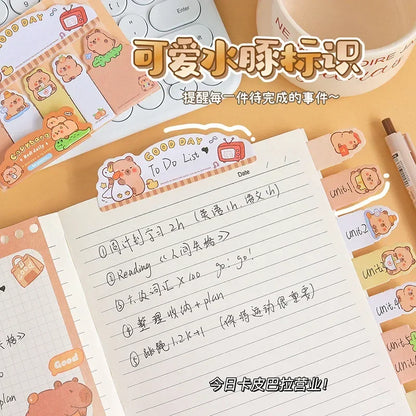 GOOD DAY
可爱水豚标识
提醒每一件待完成的事件~
Capybara
GOOD DAY
To Do List
Date
unit.1
unit.2
unit.3
unit.4
unit
①周计划学习2h（英语1h、语文1h）
②Reading 《人间失格》
③六级词汇×100 go! go!
④整理收纳+plan
⑤跳绳1.2k+1（保持运动很重要）
Good
plan
今日卡皮巴拉营业!